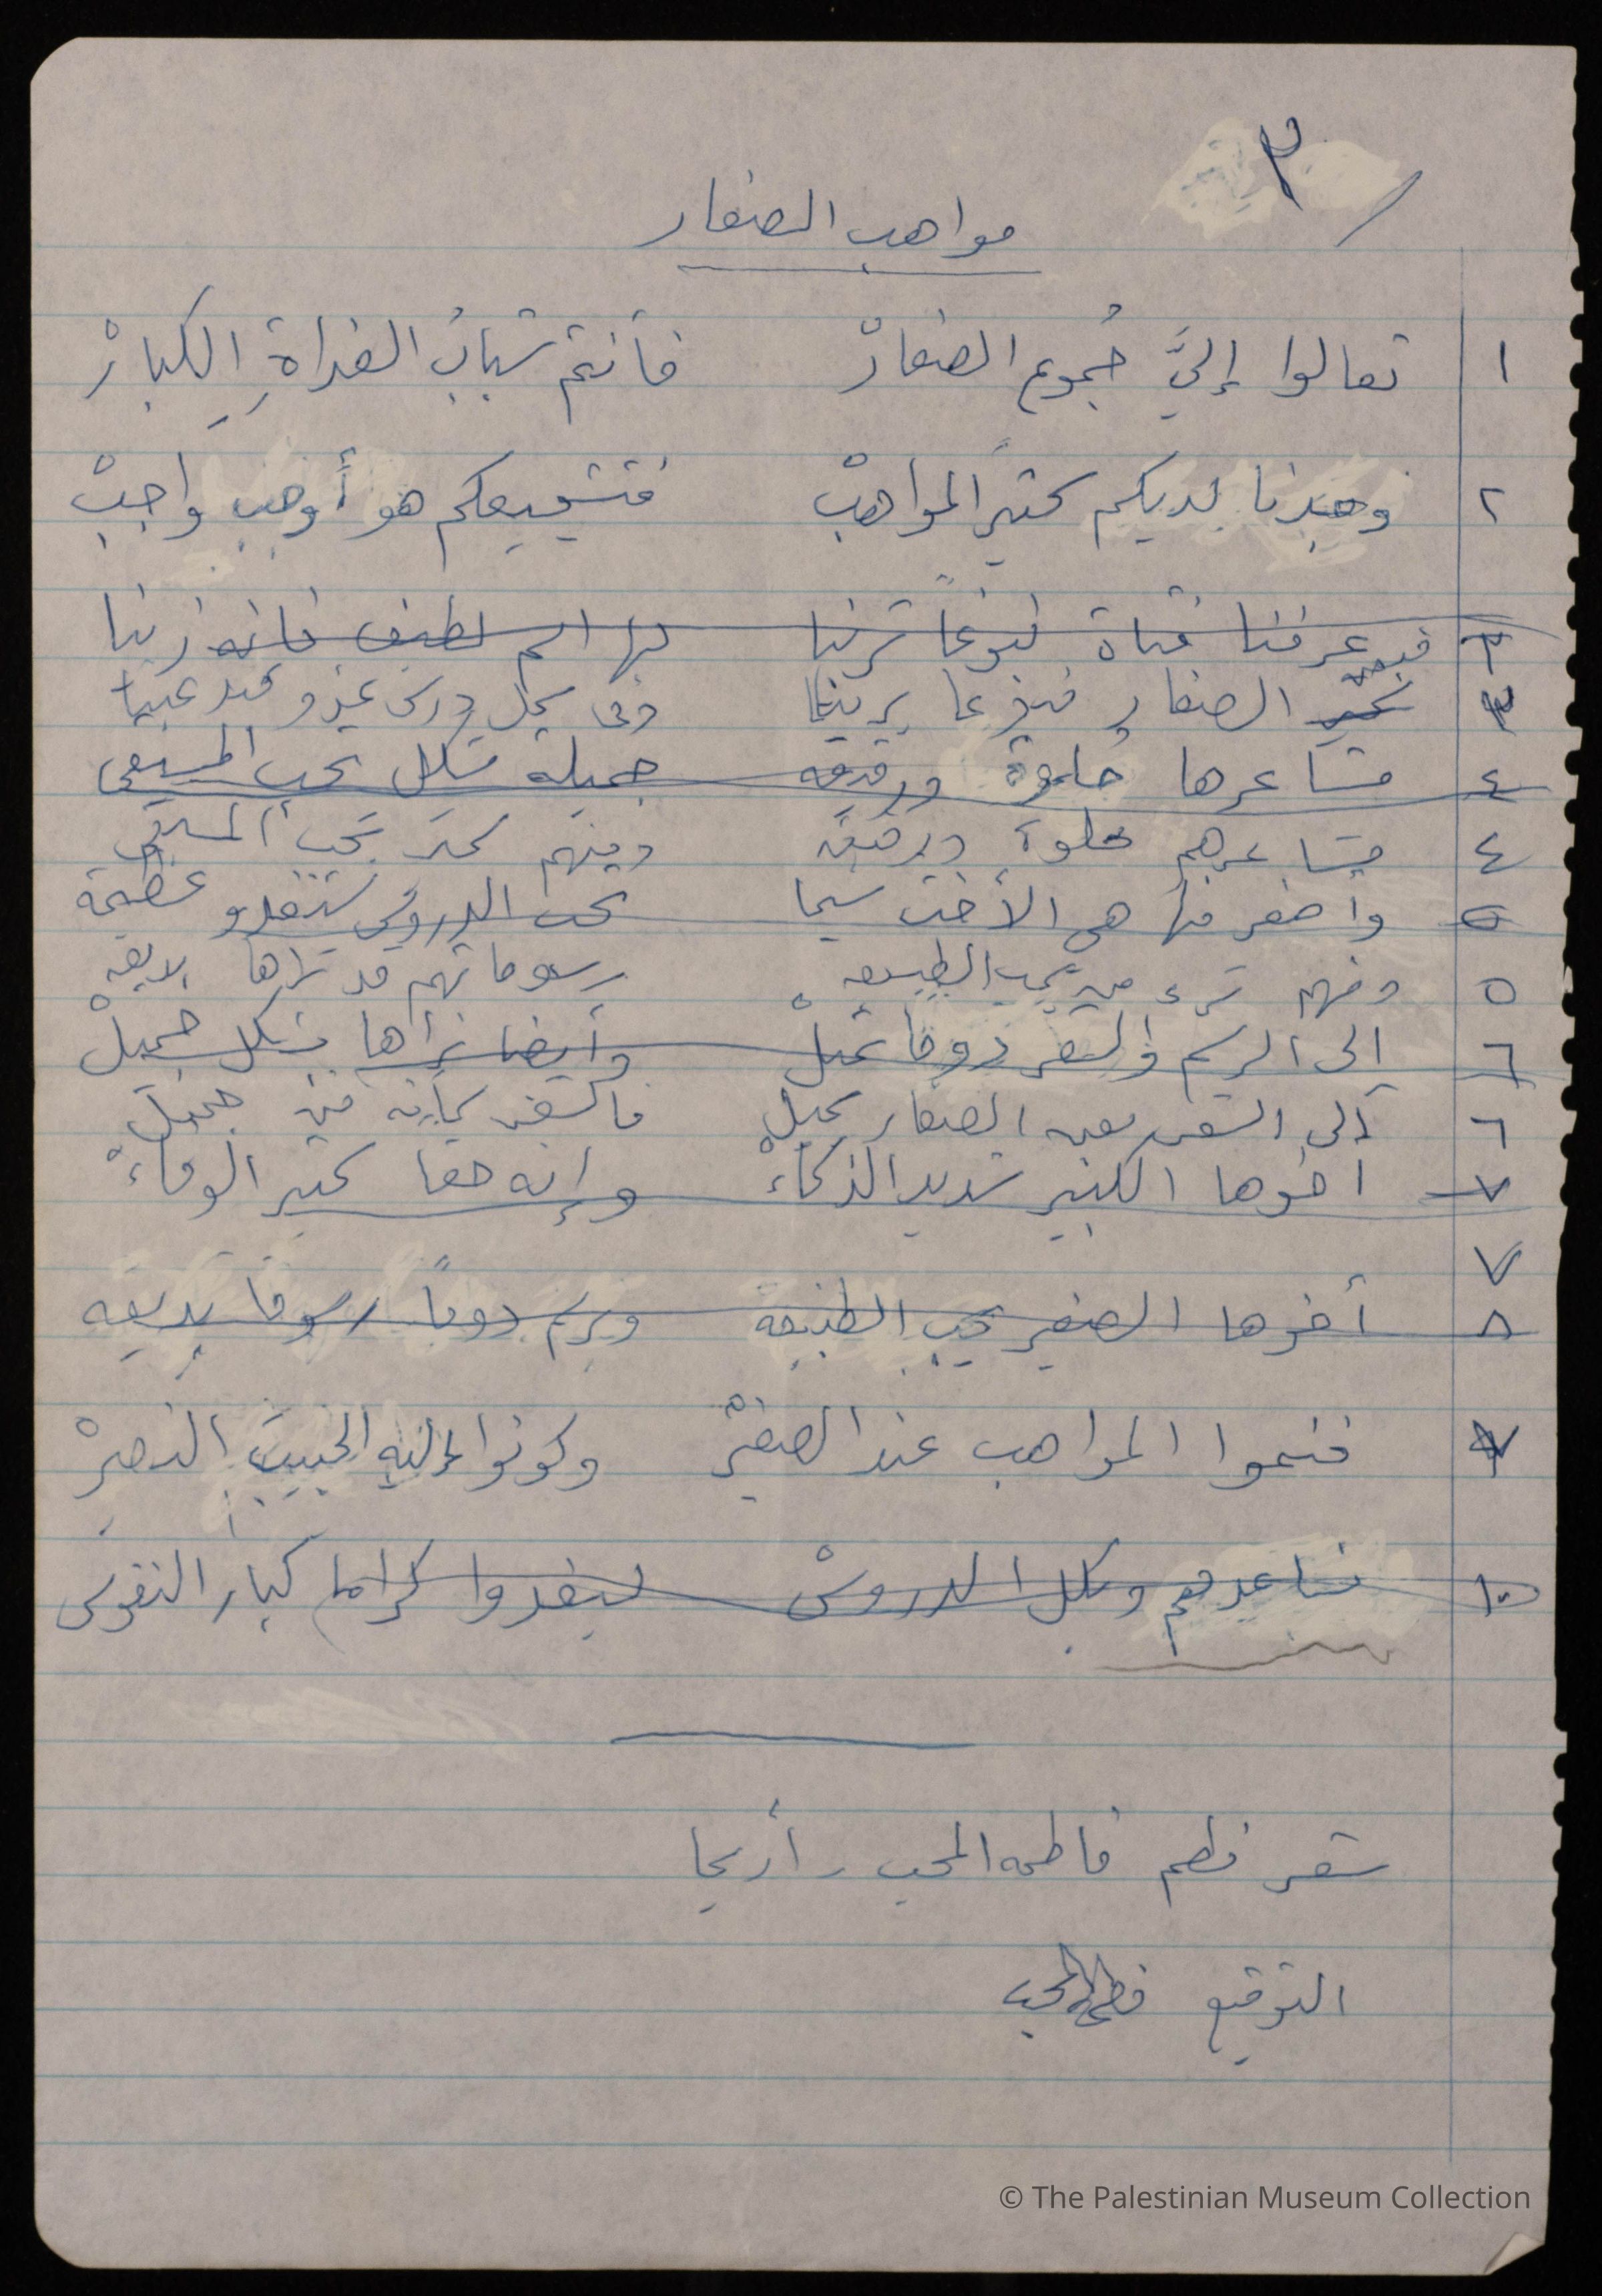 ٣
مواهب الصغار
١ تعالوا إليَّ جُموع الصغارْ فأنتم شبابُ الغداةِ الكبارْ
٢ وجدنا لديكم كثيرَ المواهبْ فتشجيعكم هو أوجب واجبْ
٣ عرفنا فتاة نبوغاً ترينا لها اسم لطيف فانه زينا
٣ الصغار نبوغا يرينا وفى كل درس
٤ مشاعرها حلوة ورقيقه جميلة شكل تحب الموسيقى
٤ مشاعرهم حلوة ورقيقه ومنهم كثير تحب الموسيقى
٥ وأصغر منها هى الأخت سيما تحب الدروس ستغدو عظيمة
٥ ومنهم ترى من يحب الطبيعه رسوماتهم قد تراها بديعه
٦ إلى الرسم والشعر دوما تميلْ وأيضا نراها بشكل جميلْ
٦ إلى الشعر بعض الصغار يميلْ فالشعر فن جميل
٧ اخوها الكبير شديد الذكاءْ وإنه حقا كثير الوفاءْ
٧
٨ أخوها الصغير يحب الطبيعة ويرسم دوماً رسوما بديعه
٧ فنموا المواهب عند الصغيْر وكونوا إليه الحبيبَ النصيرْ
١٠ نساعدهم وبكل الدروسْ ليغدوا كراما كبار النفوس
شعر نظم فاطمه المحب - أريحا
التوقيع فاطمه المحب
© The Palestinian Museum Collection